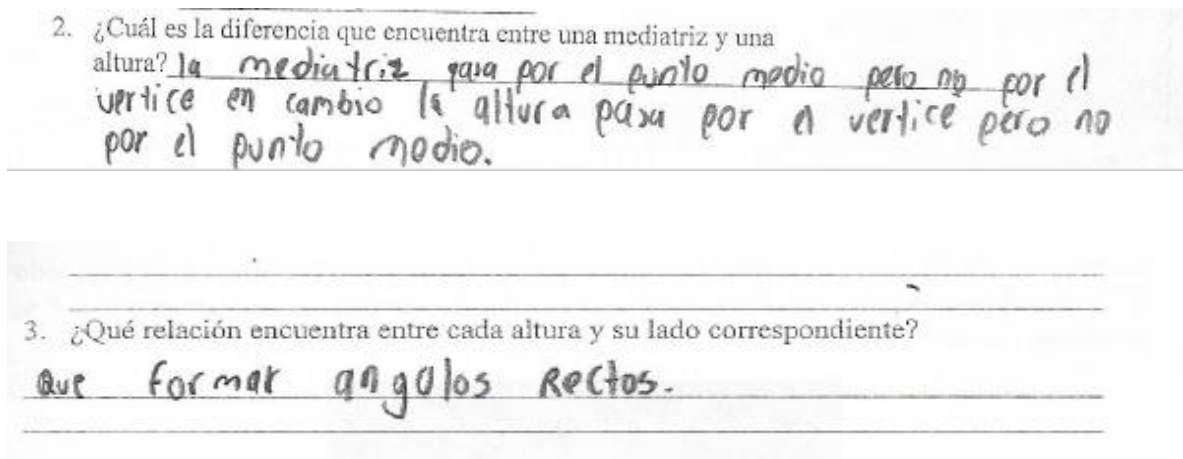 2. ¿Cuál es la diferencia que encuentra entre una mediatriz y una
altura? la mediatriz pasa por el punto medio pero no por el
vertice en cambio la altura pasa por el vertice pero no
por el punto medio.
3. ¿Qué relación encuentra entre cada altura y su lado correspondiente?
Que formar angulos Rectos.